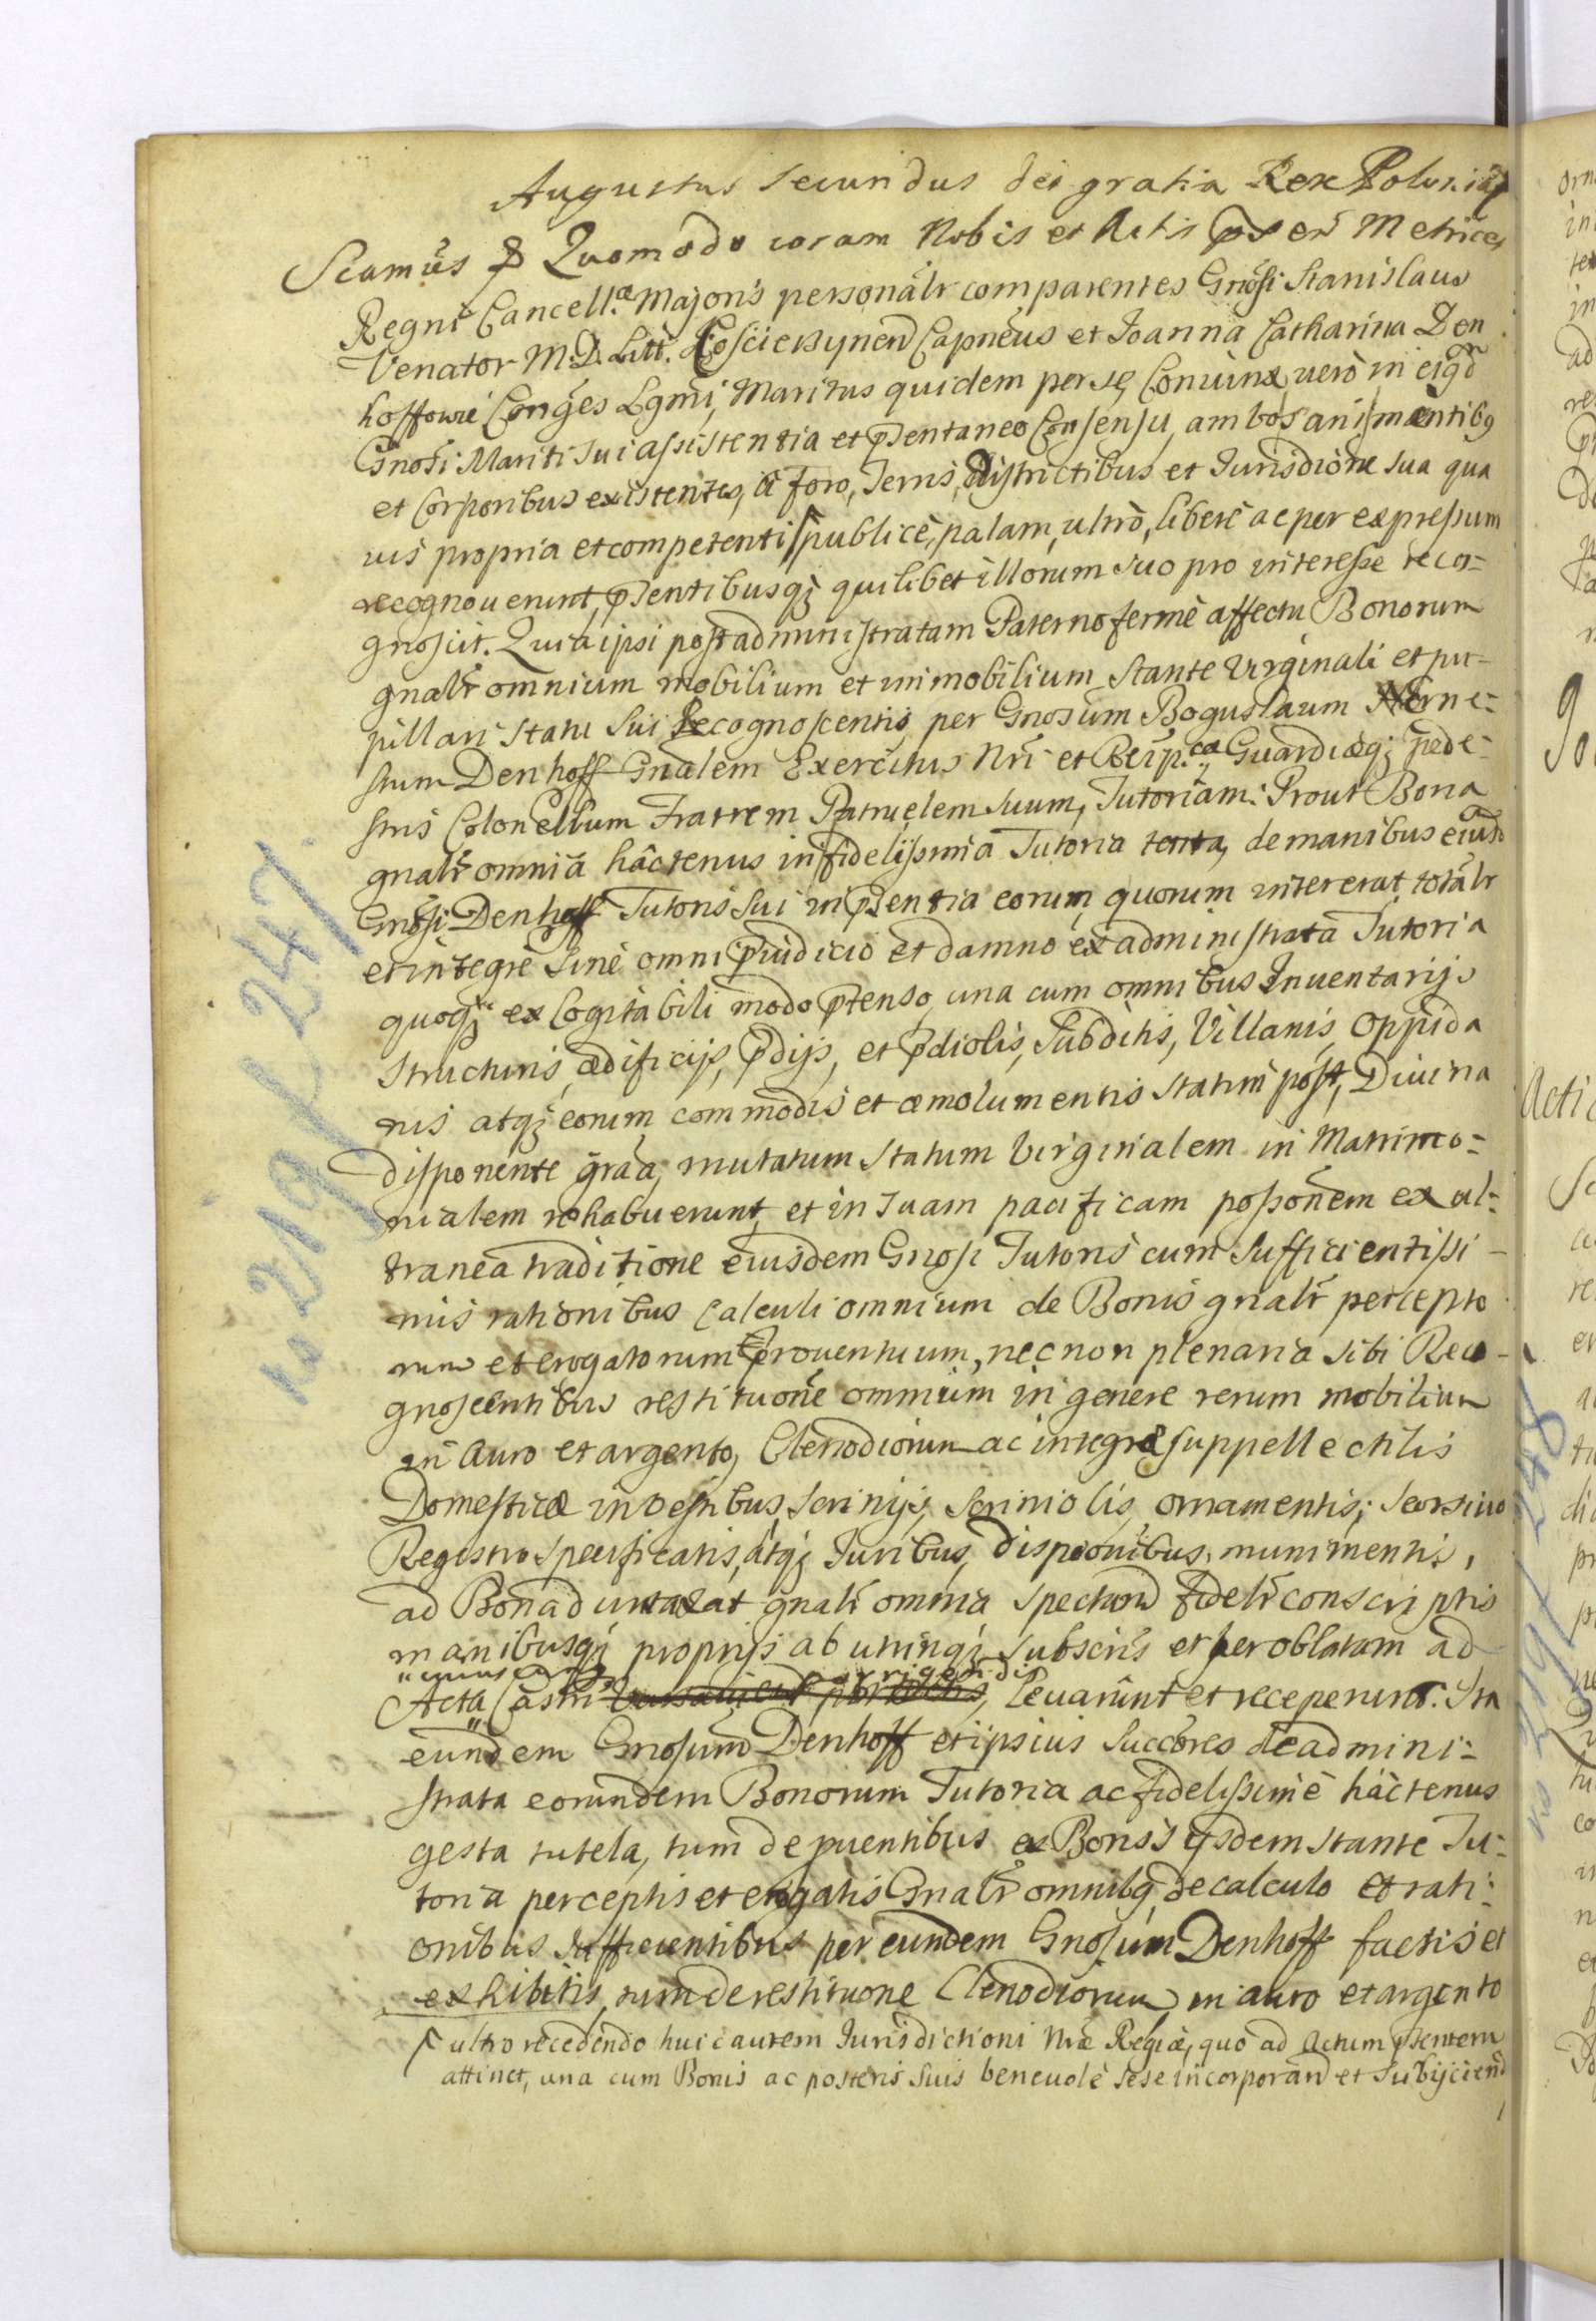 Augustus Secundus dei gratia Rex Poloniæ
Scamus & Quomodo coram Nobis et Actis pnsen Metrices
Regni Cancell.æ Majoris personalr comparentes Gnosi Stanislaus
Venator M.D. Litt. Kosciersynen Capneus et Joanna Catharina Den
hoffowie Conges Lgmi, Maritus quidem per se, Coniunx vero in eigd
Gnosi Mariti sui assistentia et pntentaneo Consensu, ambo sani mentibq
et Corporibus existentes, à Foro, Terris, Districtibus et Jurisdione sua qua
vis propria et competenti publicè, palam, ultrò, liberè ac per expressum
recognouerunt, pntentibusq; quilibet illorum suo pro interesse reco-
gnoscit. Quia ipsi post administratam Paterno fermè affectu Bonorum
gnalr omnium mobilium et immobilium, stante Virginali et pu-
pillari statu sui Recognoscentis, per Gnosum Boguslaum Erne-
stum Denhoff Gnalem Exercitus Nri et Reip.cæ Guardiæq; pede-
stris Colonellum Fratrem Patruelem suum, Tutoriam: Prout Bona
gnalr omnia hactenus in fidelissima Tutoria tenta, de manibus eiusd
Gnosi Denhoff Tutoris sui in pntentia eorum, quorum intererat, totalr
et integrè sine omni pruidicio et damno ex administrata Tutoria
quoq; excogitabili modo ptenso, una cum omnibus Inuentarijs
structuris, ædificijs, pdijs, et pdiolis, Subditis, Villanis, Oppida
nis atq; eorum commodis et æmolumentis statim post, Diuina
disponente graa, mutatum statum Virginalem in Matrimo-
nialem rehabuerunt, et in suam pacificam possonem ex ul-
tranea traditione eiusdem Gnosi Tutoris cum sufficientissi-
mis rationibus calculi omnium de Bonis gnalr percepto
rum et erogatorum prouentuum, nec non plenaria sibi Reco-
gnoscentibus restituone omnium in genere rerum mobilium
in auro et argento, Clenodiorum ac integræ suppellectilis
Domesticæ in vestibus, scrinijs, scriniolis, ornamentis, seorsiuo
Registro specificatis, atq; Juribus, dispoonibus, munimentis,
ad Bona duntaxat gnalr omnia spectan fidelr conscriptis
manibusq; proprijs ab utrinq; subscris et per oblatam ad
Acta Castri porrigendis, leuarunt et receperunt. Ita
eundem Gnosum Denhoff et ipsius Succores de admini-
strata eorundem Bonorum Tutoria ac fidelissimè hactenus
gesta tutela, tum de puentibus ex Bonis ijsdem stante Tu-
toria perceptis et erogatis Gnalr omnibq, de calculo et rati-
onibus sufficientibus per eundem Gnosum Denhoff factis et
exhibitis, tum de restituone Clenodiorum in auro et argento
ultro recedendo huic autem Jurisdictioni Nræ Regiæ, quo ad Actum pntentem
attinet, una cum Bonis ac posteris suis beneuolè sese incorporan et subijcien
no 219 / 247.